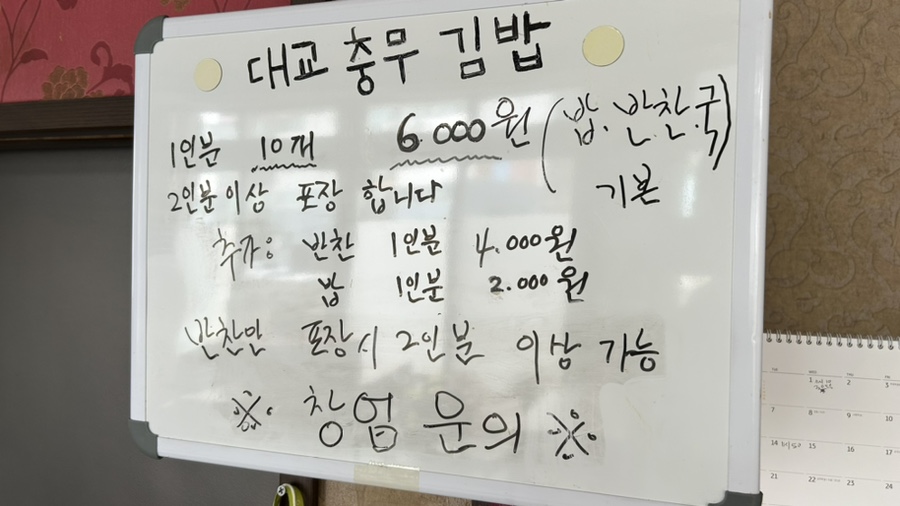 대교 충무 김밥
1인분 10개 6.000원 (밥.반찬.국)
기본
2인분이상 포장 합니다
추가: 반찬 1인분 4.000원
밥 1인분 2.000원
반찬만 포장시 2인분 이상 가능
※ 창업 문의 ※
TUE WED THU FRI
1 2 3
7 8 9 10
14 15 16 17
21 22 23 24